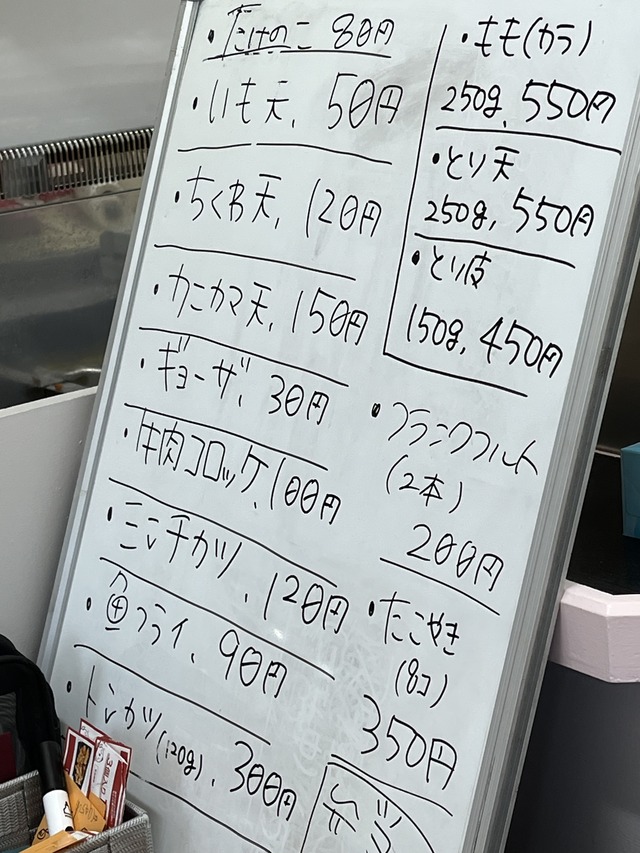 ・たけのこ 80円
・いも天、50円
・ちくわ天、120円
・カニカマ天、150円
・ギョーザ、30円
・牛肉コロッケ、100円
・ミンチカツ、120円
・魚フライ、90円
・トンカツ(120g)、300円
・もも(カラ)
250g、550円
・とり天
250g、550円
・とり皮
150g、450円
・フランクフルト
(2本)
200円
・たこやき
(8コ)
350円